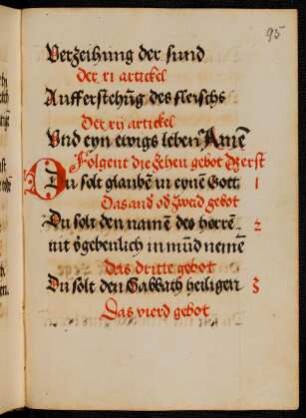 95
Verzeihung der sund
Der xi artickel
Aufferstehūg des fleischs
Der xii artickel
Vnd eyn ewigs leben Amē
Folgent die zehen gebot Dz erst
Du solt glaubē in eynē Gott 1
Das and od zweid gebot
Du solt den namē des herrē 2
nit vgebenlich in mūd nemē
das dritte gebot
Du solt den Sabbath heiligen 3
Das vierd gebot